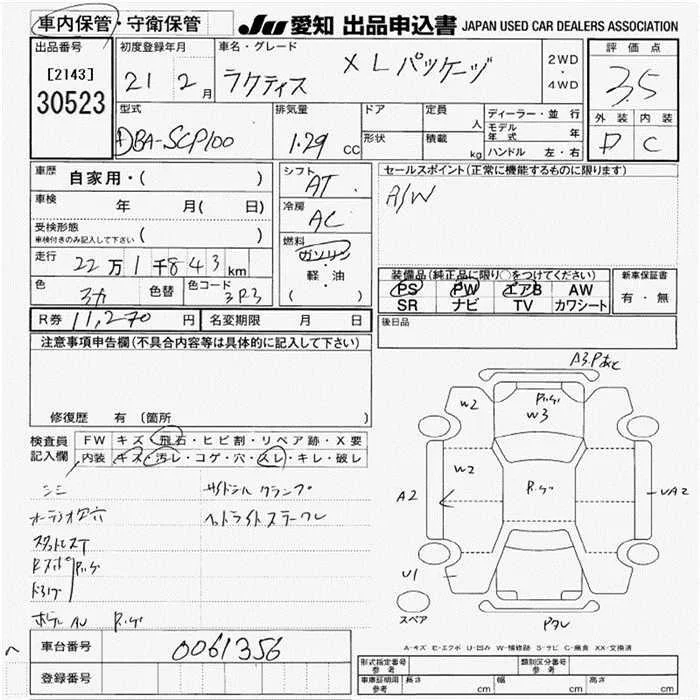 車内保管・守衛保管 JU 愛知 出品申込書 JAPAN USED CAR DEALERS ASSOCIATION
出品番号 初度登録年月 車名・グレード 評価点
[2143]
30523
21 2月 ラクティス XLパッケージ 2WD・4WD 3.5
型式 排気量 ドア 定員 人 ディーラー・並行 外装 内装
DBA-SCP100 1.29 cc 形状 積載 kg モデル年式 年 D C
ハンドル 左・右
車歴 自家用・( ) シフト AT セールスポイント(正常に機能するものに限ります)
A/W
車検 年 月( 日) 冷房 AC
受検形態 ( )
車検付きのみ記入して下さい
走行 22万1千843km 燃料 ガソリン・軽・油 ( )
装備品(純正品に限り○をつけてください) 新車保証書
PS PW エアB AW 有・無
SR ナビ TV カワシート
色 色替 色コード 3P3
後日品
R券 11,270円 名変期限 月 日
注意事項申告欄(不具合内容等は具体的に記入して下さい)
修復歴 有(箇所 )
検査員記入欄 FW キズ・飛石・ヒビ割・リペア跡・X要
内装 キズ・汚レ・コゲ・穴・スレ・キレ・破レ
シミ サイドシルクランプ
オーディオ欠 ヘッドライトステークレ
スタットレスT
車台番号 0061356
登録番号
W2 W3
W2
A2 UA2
U1
スペア
A-キズ E-エクボ U-凹み W-補修跡 S-サビ C-腐食 XX-交換済
形式指定番号 参考 類別区分番号 参考
車庫証明用 参考 長さ cm 幅 cm 高さ cm